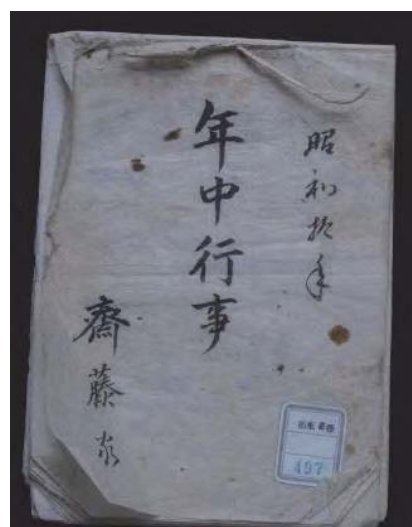 昭和拾年
年中行事
齋藤家
497